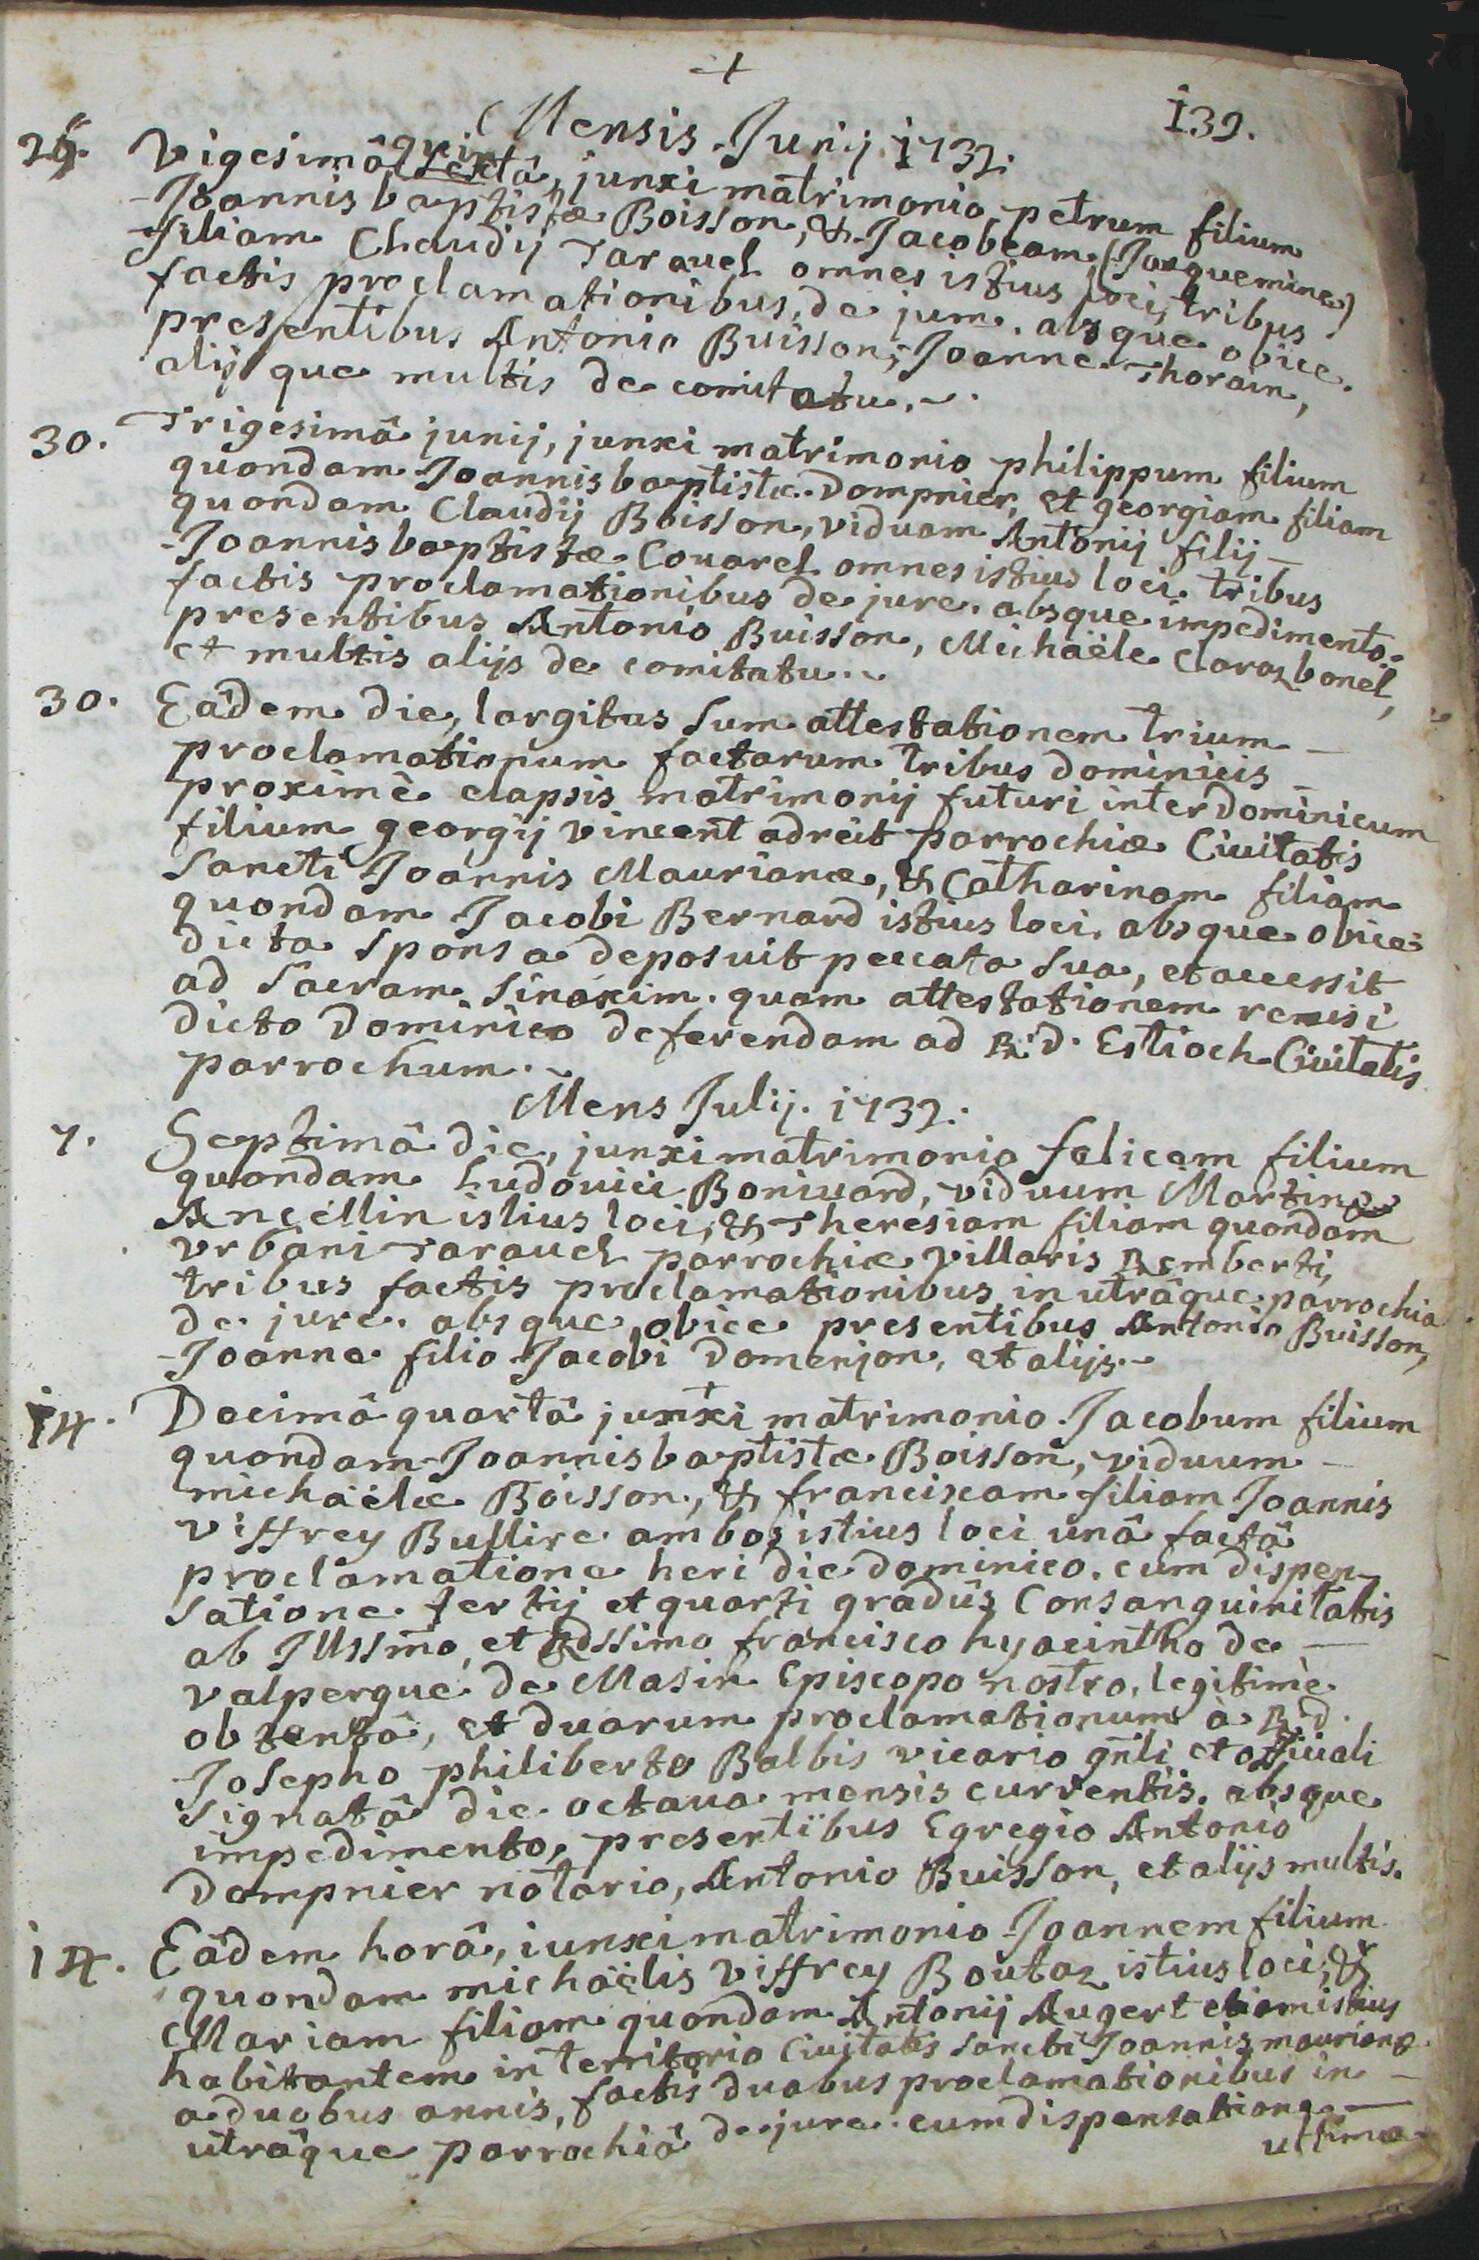 +
139.
Mensis Junij 1732.
25. Vigesimâ quintâ, junxi matrimonio petrum filium
Joannis baptistæ Boisson, & Jacobeam (Jaquemine)
filiam Claudij Taravel omnes istius loci, tribus
factis proclamationibus, de jure. absque obice.
presentibus Antonio Buisson, Joanne Thorain,
alijsque multis de comitatu.
30. Trigesimâ junij, junxi matrimonio philippum filium
quondam Joannis baptistæ Dompnier, et georgiam filiam
quondam Claudij Boisson, viduam Antonij filij
Joannis baptistæ Couarel omnes istius loci. tribus
factis proclamationibus de jure. absque impedimento.
presentibus Antonio Buisson, Michaële Claraz bonel,
et multis alijs de comitatu.
30. Eâdem die, largitus sum attestationem trium
proclamationum factarum tribus dominicis
proximè elapsis matrimonij futuri inter dominicum
filium georgij vincent adreit parrochiæ Civitatis
Sancti Joannis Maurianæ, & Catharinam filiam
quondam Jacobi Bernard istius loci. absque obice
dicta sponsa deposuit peccata sua, et accessit
ad sacram sinaxim. quam attestationem remisi
dicto Dominico deferendam ad R.d. Estioch Civitatis
parrochum.
Mens Julij. 1732.
7. Septimâ die, junxi matrimonio felicem filium
quondam Ludovici Bonivard, viduum Martinæ
Ancellin istius loci, & Theresiam filiam quondam
vrbani Taravel parrochiæ villaris Remberti,
tribus factis proclamationibus in utrâque parrochia
de jure. absque obice presentibus Antonio Buisson,
Joanne filio Jacobi Domenjon, et alijs.
14. Decimâ quartâ junxi matrimonio Jacobum filium
quondam Joannis baptistæ Boisson, viduum
michaëlæ Boisson, & franciscam filiam Joannis
viffrey Bullire ambos istius loci unâ factâ
proclamatione heri die dominico. cum dispen-
satione tertij et quarti gradûs Consanguinitatis
ab Illssimo, et Rdssimo francisco hyacintho de
valpergue de Masin Episcopo nostro, legitimè
obtentâ, et duarum proclamationum a R.d.
Josepho philiberto Balbis vicario gnli et officiali
signatâ die octava mensis currentis. absque
impedimento, presentibus Egregio Antonio
Dompnier notario, Antonio Buisson, et alijs multis.
14. Eâdem horâ, iunxi matrimonio Joannem filium
quondam michaëlis viffrey Boutaz istius loci, &
Mariam filiam quondam Antonij Augert etiam istius
habitantem in territorio Civitatis sancti Joannis maurianæ
a duobus annis, factis duabus proclamationibus in
utrâque parrochiâ de jure. cum dispensatione
ultimæ